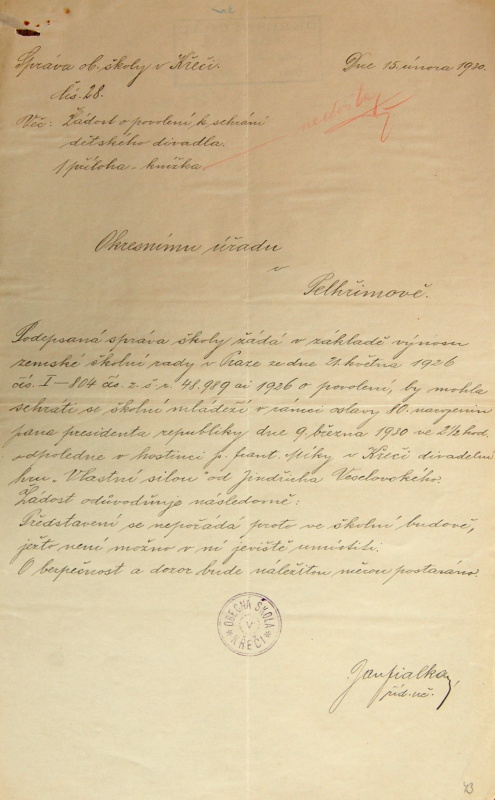 Správa ob. školy v Křeči.
Dne 15. února 1930.
čís. 28.
Věc: Žádost o povolení k sehrání
dětského divadla.
1 příloha - knížka
Okresnímu úřadu
v
Pelhřimově.
Podepsaná správa školy žádá v základě výnosu
zemské školní rady v Praze ze dne 21. května 1926
čís. I-804 čís. z. š. r. 48.989 ai 1926 o povolení, by mohla
sehráti se školní mládeží v rámci oslavy 80. narozenin
pana presidenta republiky dne 9. března 1930 ve 2 1/2 hod.
odpoledne v hostinci p. Frant. Miky v Křeči divadelní
hru „Vlastní silou" od Jindřicha Veselovského.
Žádost odůvodňuje následovně:
Představení se nepořádá proto ve školní budově,
ježto není možno v ní jeviště umístiti.
O bezpečnost a dozor bude náležitou měrou postaráno.
OBECNÁ ŠKOLA
V
KŘEČI
Jan Fialka
říd. uč.
43